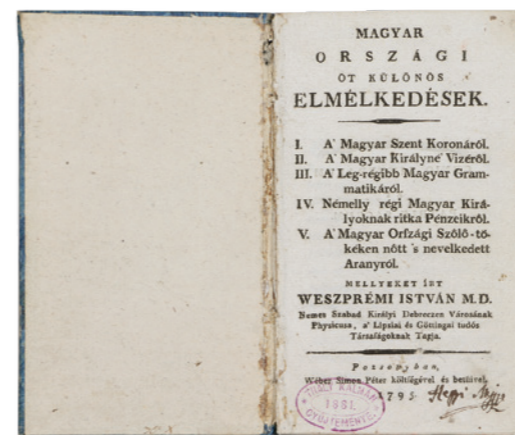 MAGYAR
ORSZÁGI
ÖT KÜLÖNÖS
ELMÉLKEDÉSEK.
I. A' Magyar Szent Koronáról.
II. A' Magyar Királyné Vizéről.
III. A' Leg-régibb Magyar Gram-
matikáról.
IV. Némelly régi Magyar Kirá-
lyoknak ritka Pénzeikről.
V. A' Magyar Orſzági Szőlő-tő-
kéken nőtt 's nevelkedett
Aranyról.
MELLYEKET ÍRT
WESZPRÉMI ISTVÁN M.D.
Nemes Szabad Királyi Debreczen Városának
Physicusa, a' Lipsiai és Göttingai tudós
Társaságoknak Tagja.
Pozsonyban,
Wéber Simon Péter költségével és betűivel,
1795
THALY KÁLMÁN
1881.
GYŰJTEMÉNYE